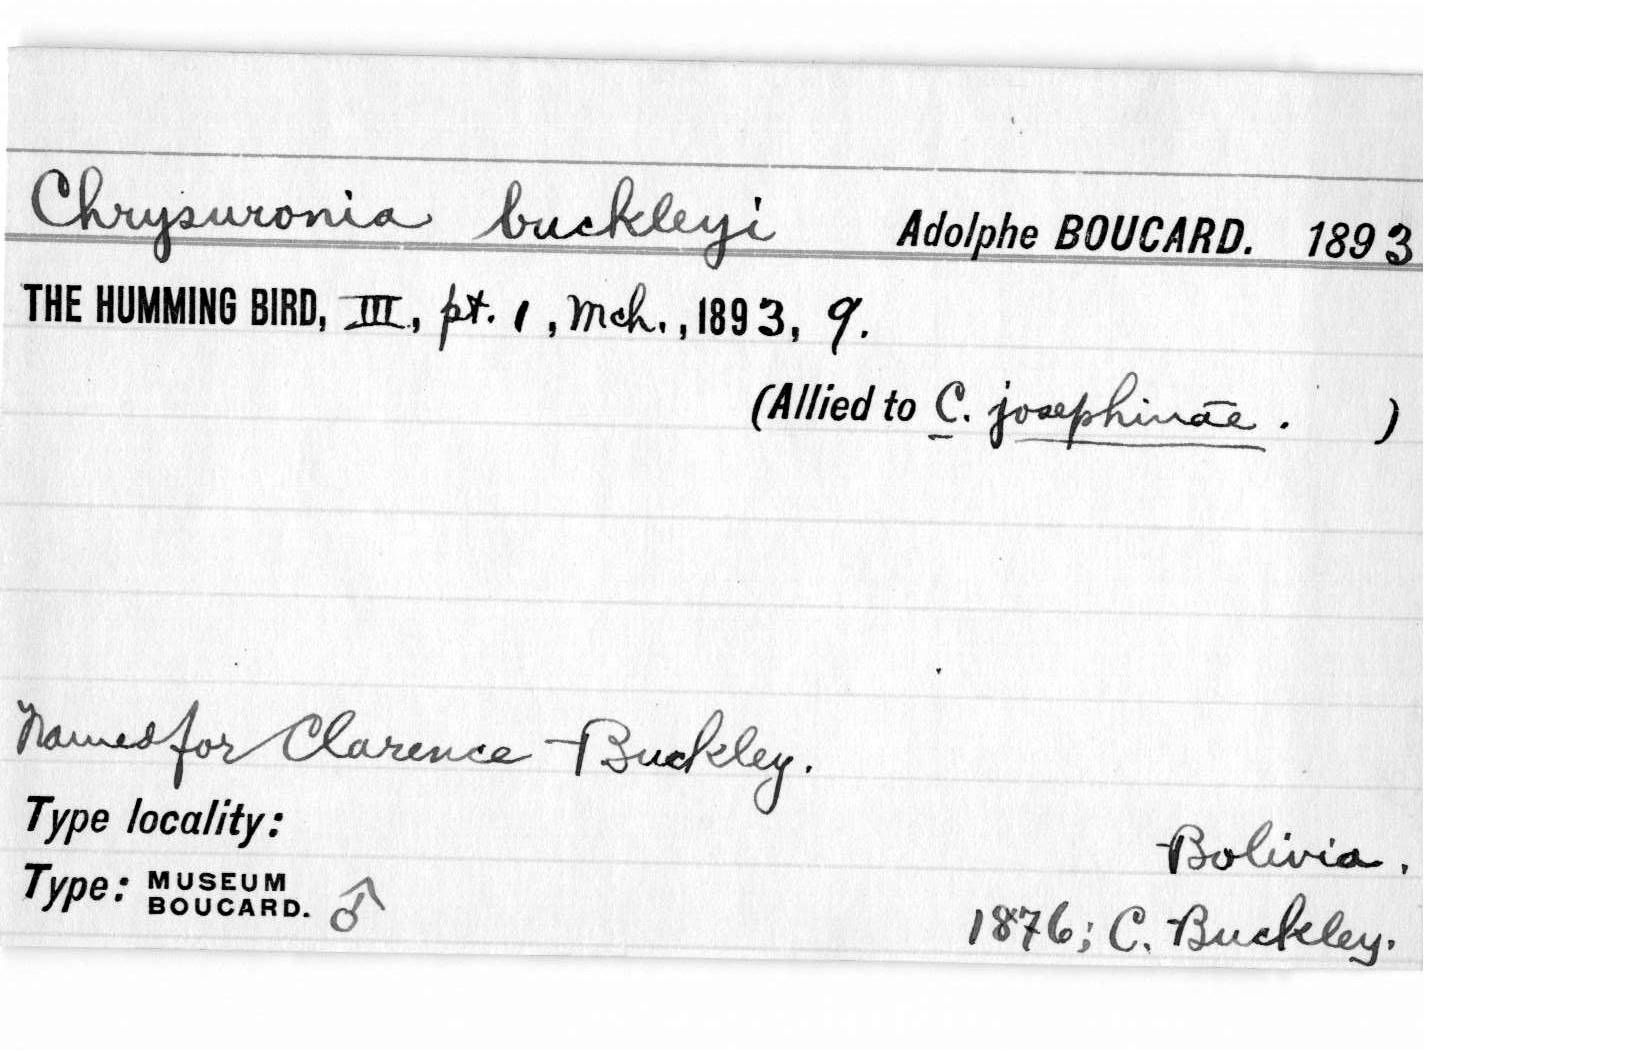 Chrysuronia buckleyi Adolphe BOUCARD. 1893
THE HUMMING BIRD, III, pt. 1, Mch., 1893, 9.
(Allied to C. josephinae. )
Named for Clarence Buckley.
Type locality:
Bolivia.
Type: MUSEUM BOUCARD. ♂
1876; C. Buckley.